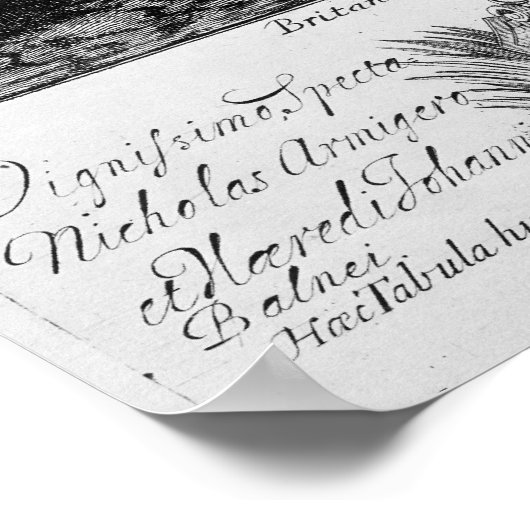 Britan
Dignissimo, Specta
Nicholas Armigero
et Hæredi Johanni
Balnei.
Hæc Tabula hu